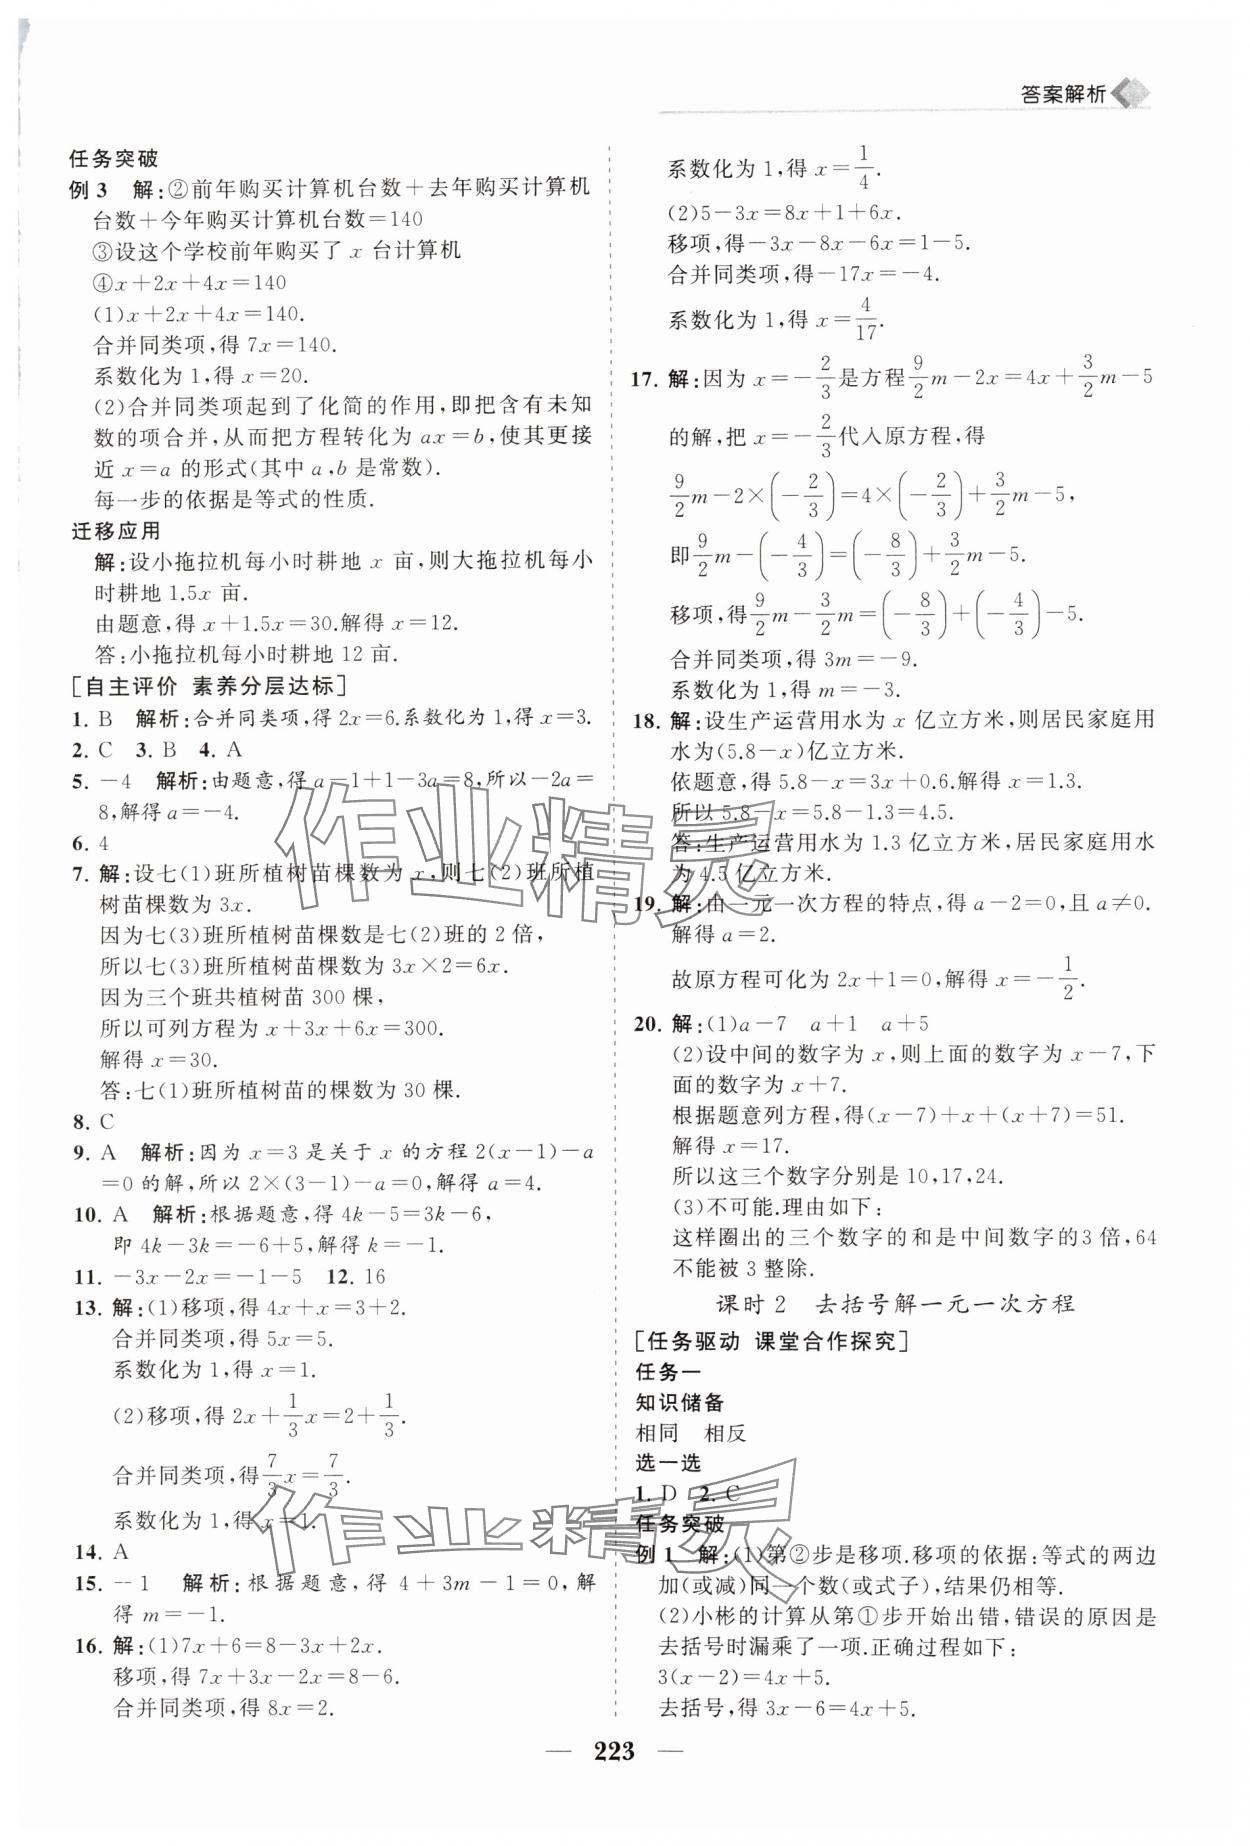 答案解析
任务突破
例3 解:②前年购买计算机台数+去年购买计算机
台数+今年购买计算机台数=140
③设这个学校前年购买了 x 台计算机
④x+2x+4x=140
(1)x+2x+4x=140.
合并同类项,得 7x=140.
系数化为1,得 x=20.
(2)合并同类项起到了化简的作用,即把含有未知
数的项合并,从而把方程转化为 ax=b,使其更接
近 x=a 的形式(其中 a,b 是常数).
每一步的依据是等式的性质.
迁移应用
解:设小拖拉机每小时耕地 x 亩,则大拖拉机每小
时耕地1.5x 亩.
由题意,得 x+1.5x=30.解得 x=12.
答:小拖拉机每小时耕地 12 亩.
[自主评价 素养分层达标]
1. B 解析:合并同类项,得 2x=6.系数化为1,得 x=3.
2. C 3. B 4. A
5. -4 解析:由题意,得 a-1+1-3a=8,所以-2a=
8,解得 a=-4.
6. 4
7. 解:设七(1)班所植树苗棵数为 x,则七(2)班所植
树苗棵数为 3x.
因为七(3)班所植树苗棵数是七(2)班的 2 倍,
所以七(3)班所植树苗棵数为 3x×2=6x.
因为三个班共植树苗 300 棵,
所以可列方程为 x+3x+6x=300.
解得 x=30.
答:七(1)班所植树苗的棵数为 30 棵.
8. C
9. A 解析:因为 x=3 是关于 x 的方程 2(x-1)-a
=0 的解,所以 2×(3-1)-a=0,解得 a=4.
10. A 解析:根据题意,得 4k-5=3k-6,
即 4k-3k=-6+5,解得 k=-1.
11. -3x-2x=-1-5 12. 16
13. 解:(1)移项,得 4x+x=3+2.
合并同类项,得 5x=5.
系数化为1,得 x=1.
(2)移项,得 2x+1/3x=2+1/3.
合并同类项,得7/3x=7/3.
系数化为1,得 x=1.
14. A
15. -1 解析:根据题意,得 4+3m-1=0,解
得 m=-1.
16. 解:(1)7x+6=8-3x+2x.
移项,得 7x+3x-2x=8-6.
合并同类项,得 8x=2.
系数化为1,得 x=1/4.
(2)5-3x=8x+1+6x.
移项,得-3x-8x-6x=1-5.
合并同类项,得-17x=-4.
系数化为1,得 x=4/17.
17. 解:因为 x=-2/3是方程9/2m-2x=4x+3/2m-5
的解,把 x=-2/3代入原方程,得
9/2m-2×(-2/3)=4×(-2/3)+3/2m-5,
即9/2m-(-4/3)=(-8/3)+3/2m-5.
移项,得9/2m-3/2m=(-8/3)+(-4/3)-5.
合并同类项,得 3m=-9.
系数化为1,得 m=-3.
18. 解:设生产运营用水为 x 亿立方米,则居民家庭用
水为(5.8-x)亿立方米.
依题意,得 5.8-x=3x+0.6.解得 x=1.3.
所以 5.8-x=5.8-1.3=4.5.
答:生产运营用水为 1.3 亿立方米,居民家庭用水
为 4.5 亿立方米.
19. 解:由一元一次方程的特点,得 a-2=0,且 a≠0.
解得 a=2.
故原方程可化为 2x+1=0,解得 x=-1/2.
20. 解:(1)a-7 a+1 a+5
(2)设中间的数字为 x,则上面的数字为 x-7,下
面的数字为 x+7.
根据题意列方程,得(x-7)+x+(x+7)=51.
解得 x=17.
所以这三个数字分别是 10,17,24.
(3)不可能.理由如下:
这样圈出的三个数字的和是中间数字的3 倍,64
不能被 3 整除.
课时2 去括号解一元一次方程
[任务驱动 课堂合作探究]
任务一
知识储备
相同 相反
选一选
1. D 2. C
任务突破
例1 解:(1)第②步是移项.移项的依据:等式的两边
加(或减)同一个数(或式子),结果仍相等.
(2)小彬的计算从第①步开始出错,错误的原因是
去括号时漏乘了一项.正确过程如下:
3(x-2)=4x+5.
去括号,得 3x-6=4x+5.
— 223 —
作业精灵
作业精灵